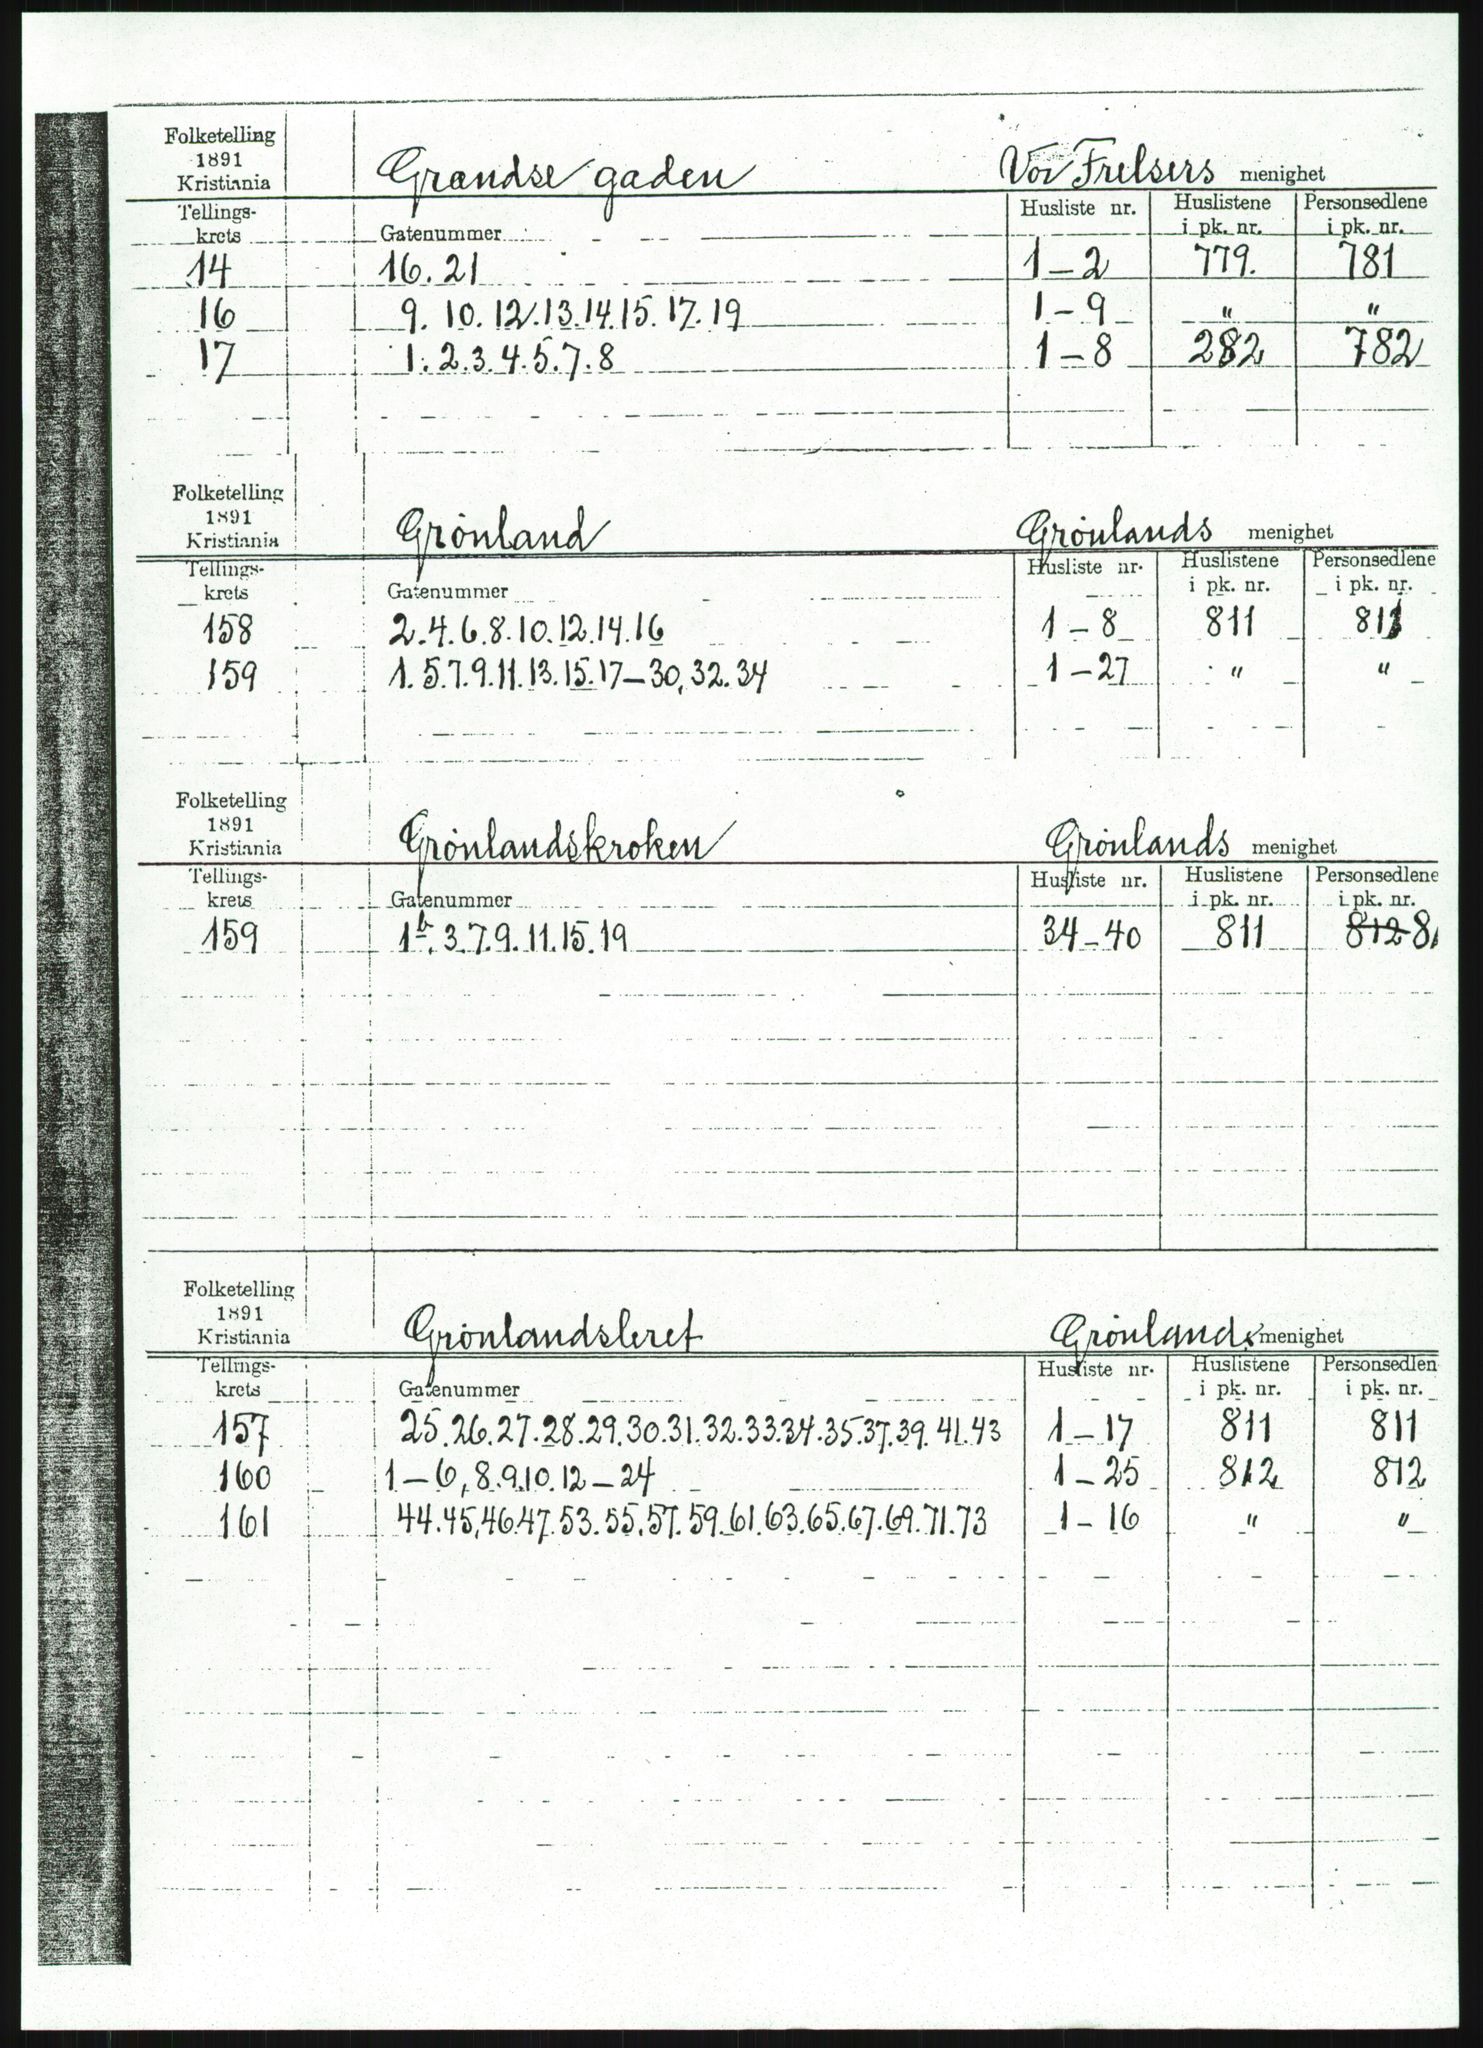 Folketelling
1891
Kristiania
Grændse gaden
Vor Frelsers menighet
Tellings-krets Gatenummer Husliste nr. Huslistene i pk. nr. Personsedlene i pk. nr.
14 16. 21 1 – 2 779. 781
16 9. 10. 12. 13. 14. 15. 17. 19 1 – 9 " "
17 1. 2. 3. 4. 5. 7. 8 1 – 8 282 782
Folketelling
1891
Kristiania
Grönland
Grönlands menighet
Tellings-krets Gatenummer Husliste nr. Huslistene i pk. nr. Personsedlene i pk. nr.
158 2. 4. 6. 8. 10. 12. 14. 16 1 – 8 811 811
159 1. 5. 7. 9. 11. 13. 15. 17 – 30, 32. 34 1 – 27 " "
Folketelling
1891
Kristiania
Grönlandskroken
Grönlands menighet
Tellings-krets Gatenummer Husliste nr. Huslistene i pk. nr. Personsedlene i pk. nr.
159 1b. 3. 7. 9. 11. 15. 19 34 – 40 811 812
Folketelling
1891
Kristiania
Grönlandsleret
Grönlands menighet
Tellings-krets Gatenummer Husliste nr. Huslistene i pk. nr. Personsedlen i pk. nr.
157 25. 26. 27. 28. 29. 30. 31. 32. 33. 34. 35. 37. 39. 41. 43 1 – 17 811 811
160 1 – 6, 8. 9. 10. 12 – 24 1 – 25 812 812
161 44. 45. 46. 47. 53. 55. 57. 59. 61. 63. 65. 67. 69. 71. 73 1 – 16 " "